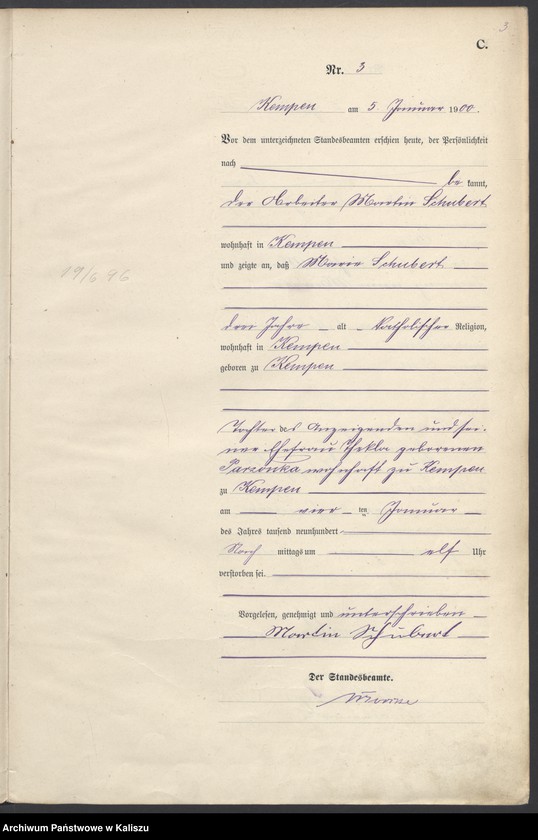 3
C.
Nr. 3
Kempen am 5 Januar 1900.
Vor dem unterzeichneten Standesbeamten erschien heute, der Persönlichkeit
nach
be kannt,
der Arbeiter Martin Schubert
wohnhaft in Kempen
und zeigte an, daß Marie Schubert
19/6 96
drei Jahre alt katholischer Religion,
wohnhaft in Kempen
geboren zu Kempen
Tochter des Anzeigenden und sei-
ner Ehefrau Thekla geborenen
Parzonka wohnhaft zu Kempen
zu Kempen
am vier ten Januar
des Jahres tausend neunhundert
Nach mittags um elf Uhr
verstorben sei.
Vorgelesen, genehmigt und unterschrieben
Martin Schubert
Der Standesbeamte.
Archiwum Państwowe w Kaliszu